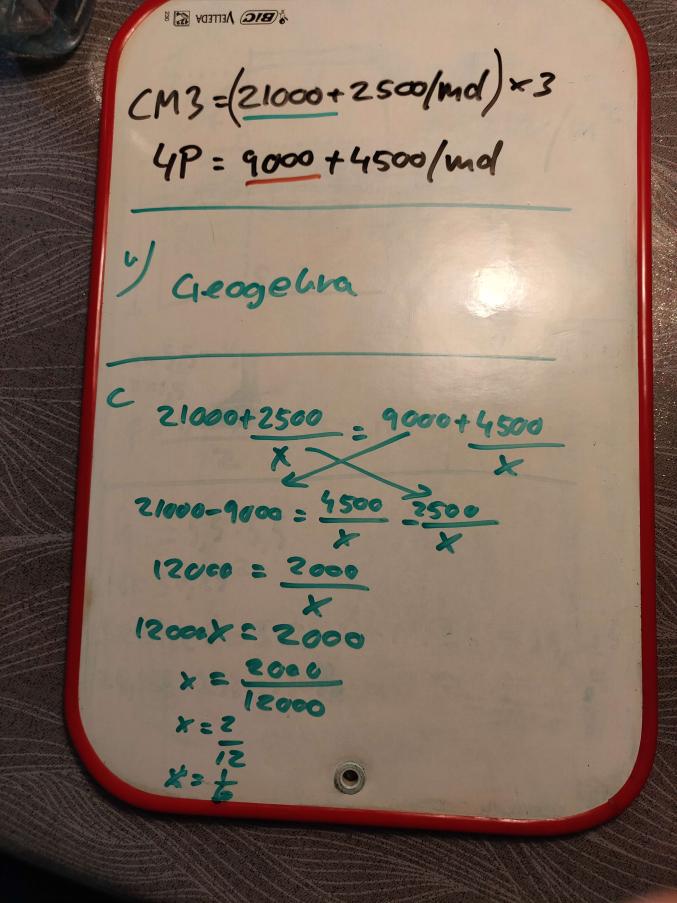 BIC VELLEDA
CM3 = (21000 + 2500/md) × 3
4P = 9000 + 4500/md
b) Geogebra
C
21000 + 2500/x = 9000 + 4500/x
21000 - 9000 = 4500/x - 2500/x
12000 = 2000/x
12000x = 2000
x = 2000/12000
x = 2/12
x = 1/6